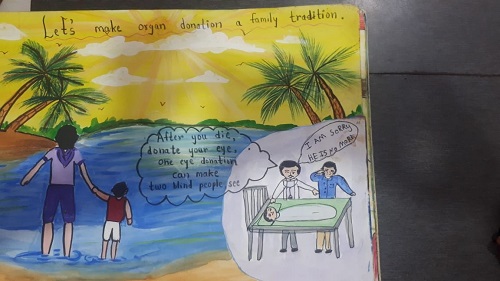 Let's make organ donation a family tradition.
After you die,
donate your eye.
One eye donation
can make
two blind people see
I AM SORRY
HE IS NO MORE